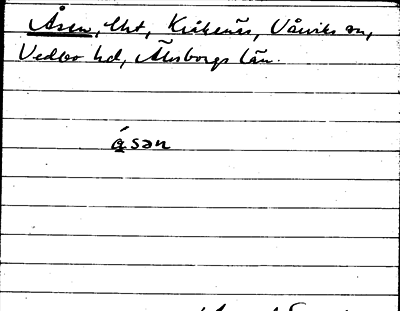 Åsen, lht, Kråkenäs, Vårviks sn,
Vedbo hd, Älvsborgs län.
ą́sən